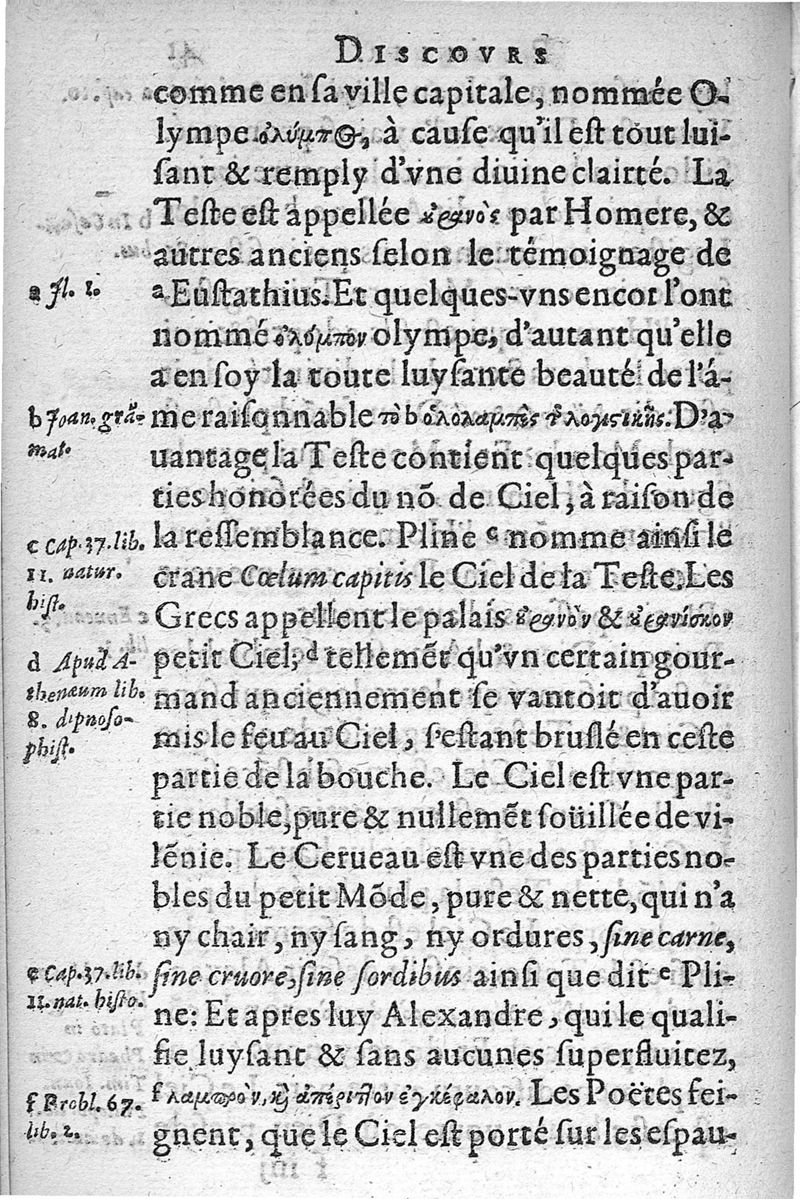 DISCOVRS
comme en ſa ville capitale, nommée O-
lympe ὀλύμπος, à cauſe qu'il eſt tout lui-
ſant & remply d'vne diuine clairté. La
Teſte eſt appellée οὐρανὸς par Homere, &
autres anciens ſelon le témoignage de
a fl. 1.
ᵃ Euſtathius. Et quelques-vns encor l'ont
nommé ὀλύμπον olympe, d'autant qu'elle
a en ſoy la toute luyſante beauté de l'â-
b Joan. grā-
mat.
me raiſonnable τὸ b ὁλολαμπὲς τῆς λογιστικῆς. D'a-
uantage la Teſte contient quelques par-
ties honorées du nõ de Ciel, à raiſon de
c Cap. 37. lib.
11. natur.
hiſt.
la reſſemblance. Pline ᶜ nomme ainſi le
crane Cœlum capitis le Ciel de la Teſte. Les
Grecs appellent le palais οὐρανὸν & οὐρανίσκον
d Apud A-
thenæum lib.
8. dipnoſo-
phiſt.
petit Ciel, ᵈ tellemẽt qu'vn certain gour-
mand anciennement ſe vantoit d'auoir
mis le feu au Ciel, s'eſtant bruſlé en ceſte
partie de la bouche. Le Ciel eſt vne par-
tie noble, pure & nullemẽt ſoüillée de vi-
lénie. Le Cerueau eſt vne des parties no-
bles du petit Mõde, pure & nette, qui n'a
ny chair, ny ſang, ny ordures, ſine carne,
e Cap. 37. lib.
11. nat. hiſto.
ſine cruore, ſine ſordibus ainſi que dit ᵉ Pli-
ne: Et apres luy Alexandre, qui le quali-
fie luyſant & ſans aucunes ſuperfluitez,
f Probl. 67.
lib. 2.
ᶠ λαμπρὸν, καὶ ἀπέριτλον ἐγκέφαλον. Les Poëtes fei-
gnent, que le Ciel eſt porté ſur les eſpau-